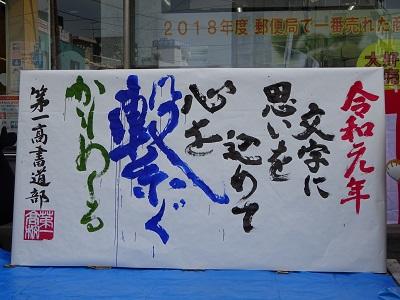 2018年度 郵便局で一番売れた商
令和元年
文字に
思いを
込めて
心を
繋ぐ
かりめーる
第一高書道部